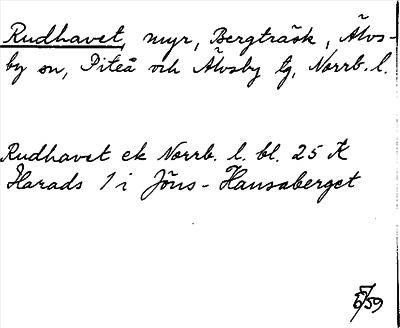 Rudhavet, myr, Bergträsk, Älvs-
by sn, Piteå och Älvsby tg, Norrb. l.
Rudhavet ek Norrb. l. bl. 25 K
Harads 1 i Jöns-Hansaberget